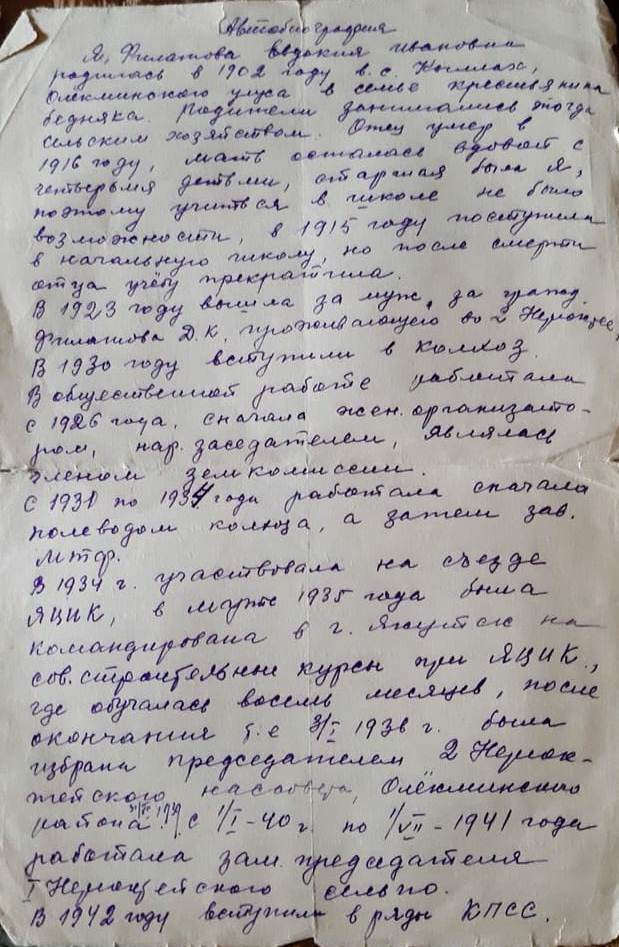 Автобиография
Я, Филатова Евдокия Ивановна
родилась в 1902 году в с. Кыллах,
Олёкминского улуса в семье крестьянина
бедняка. Родители занимались тогда
сельским хозяйством. Отец умер в
1916 году, мать осталась вдовой с
четверьмя детьми, старшая была я,
поэтому учиться в школе не было
возможности, в 1915 году поступила
в начальную школу, но после смерти
отца учёбу прекратила.
В 1923 году вышла за муж, за гражд.
Филатова Д.К. проживающего во 2 Нерюкцее,
В 1930 году вступили в колхоз.
В общественной работе работала
с 1926 года, сначала жен. организато-
ром, нар. заседателем, являлась
членом земкомиссии.
С 1931 по 1934 года работала сначала
полеводом колхоза, а затем зав.
МТФ.
В 1934 г. участвовала на съезде
ЯЦИК, в марте 1935 года была
командирована в г. Якутск на
сов. строительные курсы при ЯЦИК.,
где обучалась восемь месяцев, после
окончания т.е 3/I 1936 г. была
избрана председателем 2 Нерюк-
тейского наслсовета, Олёкминского
района. с 1/I-40 г. по 1/VII-1941 года
работала зам. председателя
I Нерюкцейского сельпо.
В 1942 году вступила в ряды КПСС.